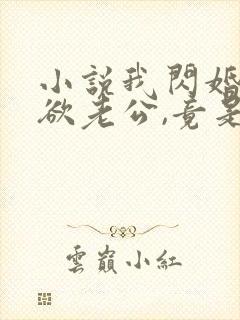 小説我閃婚
欲老公,竟是
雲巔小紅